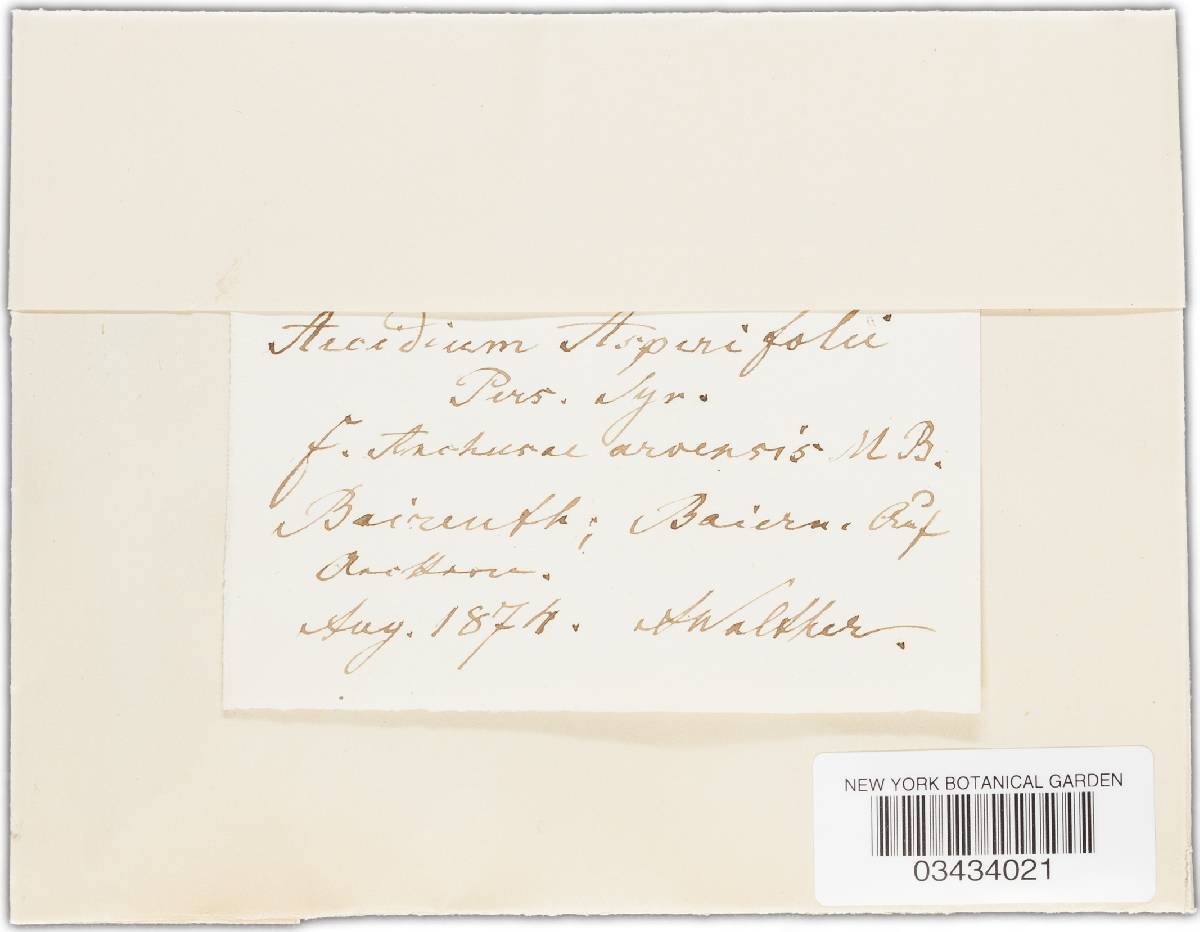 Aecidium Asperifolii
Pers. Syn.
f. Anchusae arvensis M B.
Baireuth; Baiern. Auf
Aeckern.
Aug. 1874. AWalther.
NEW YORK BOTANICAL GARDEN
03434021